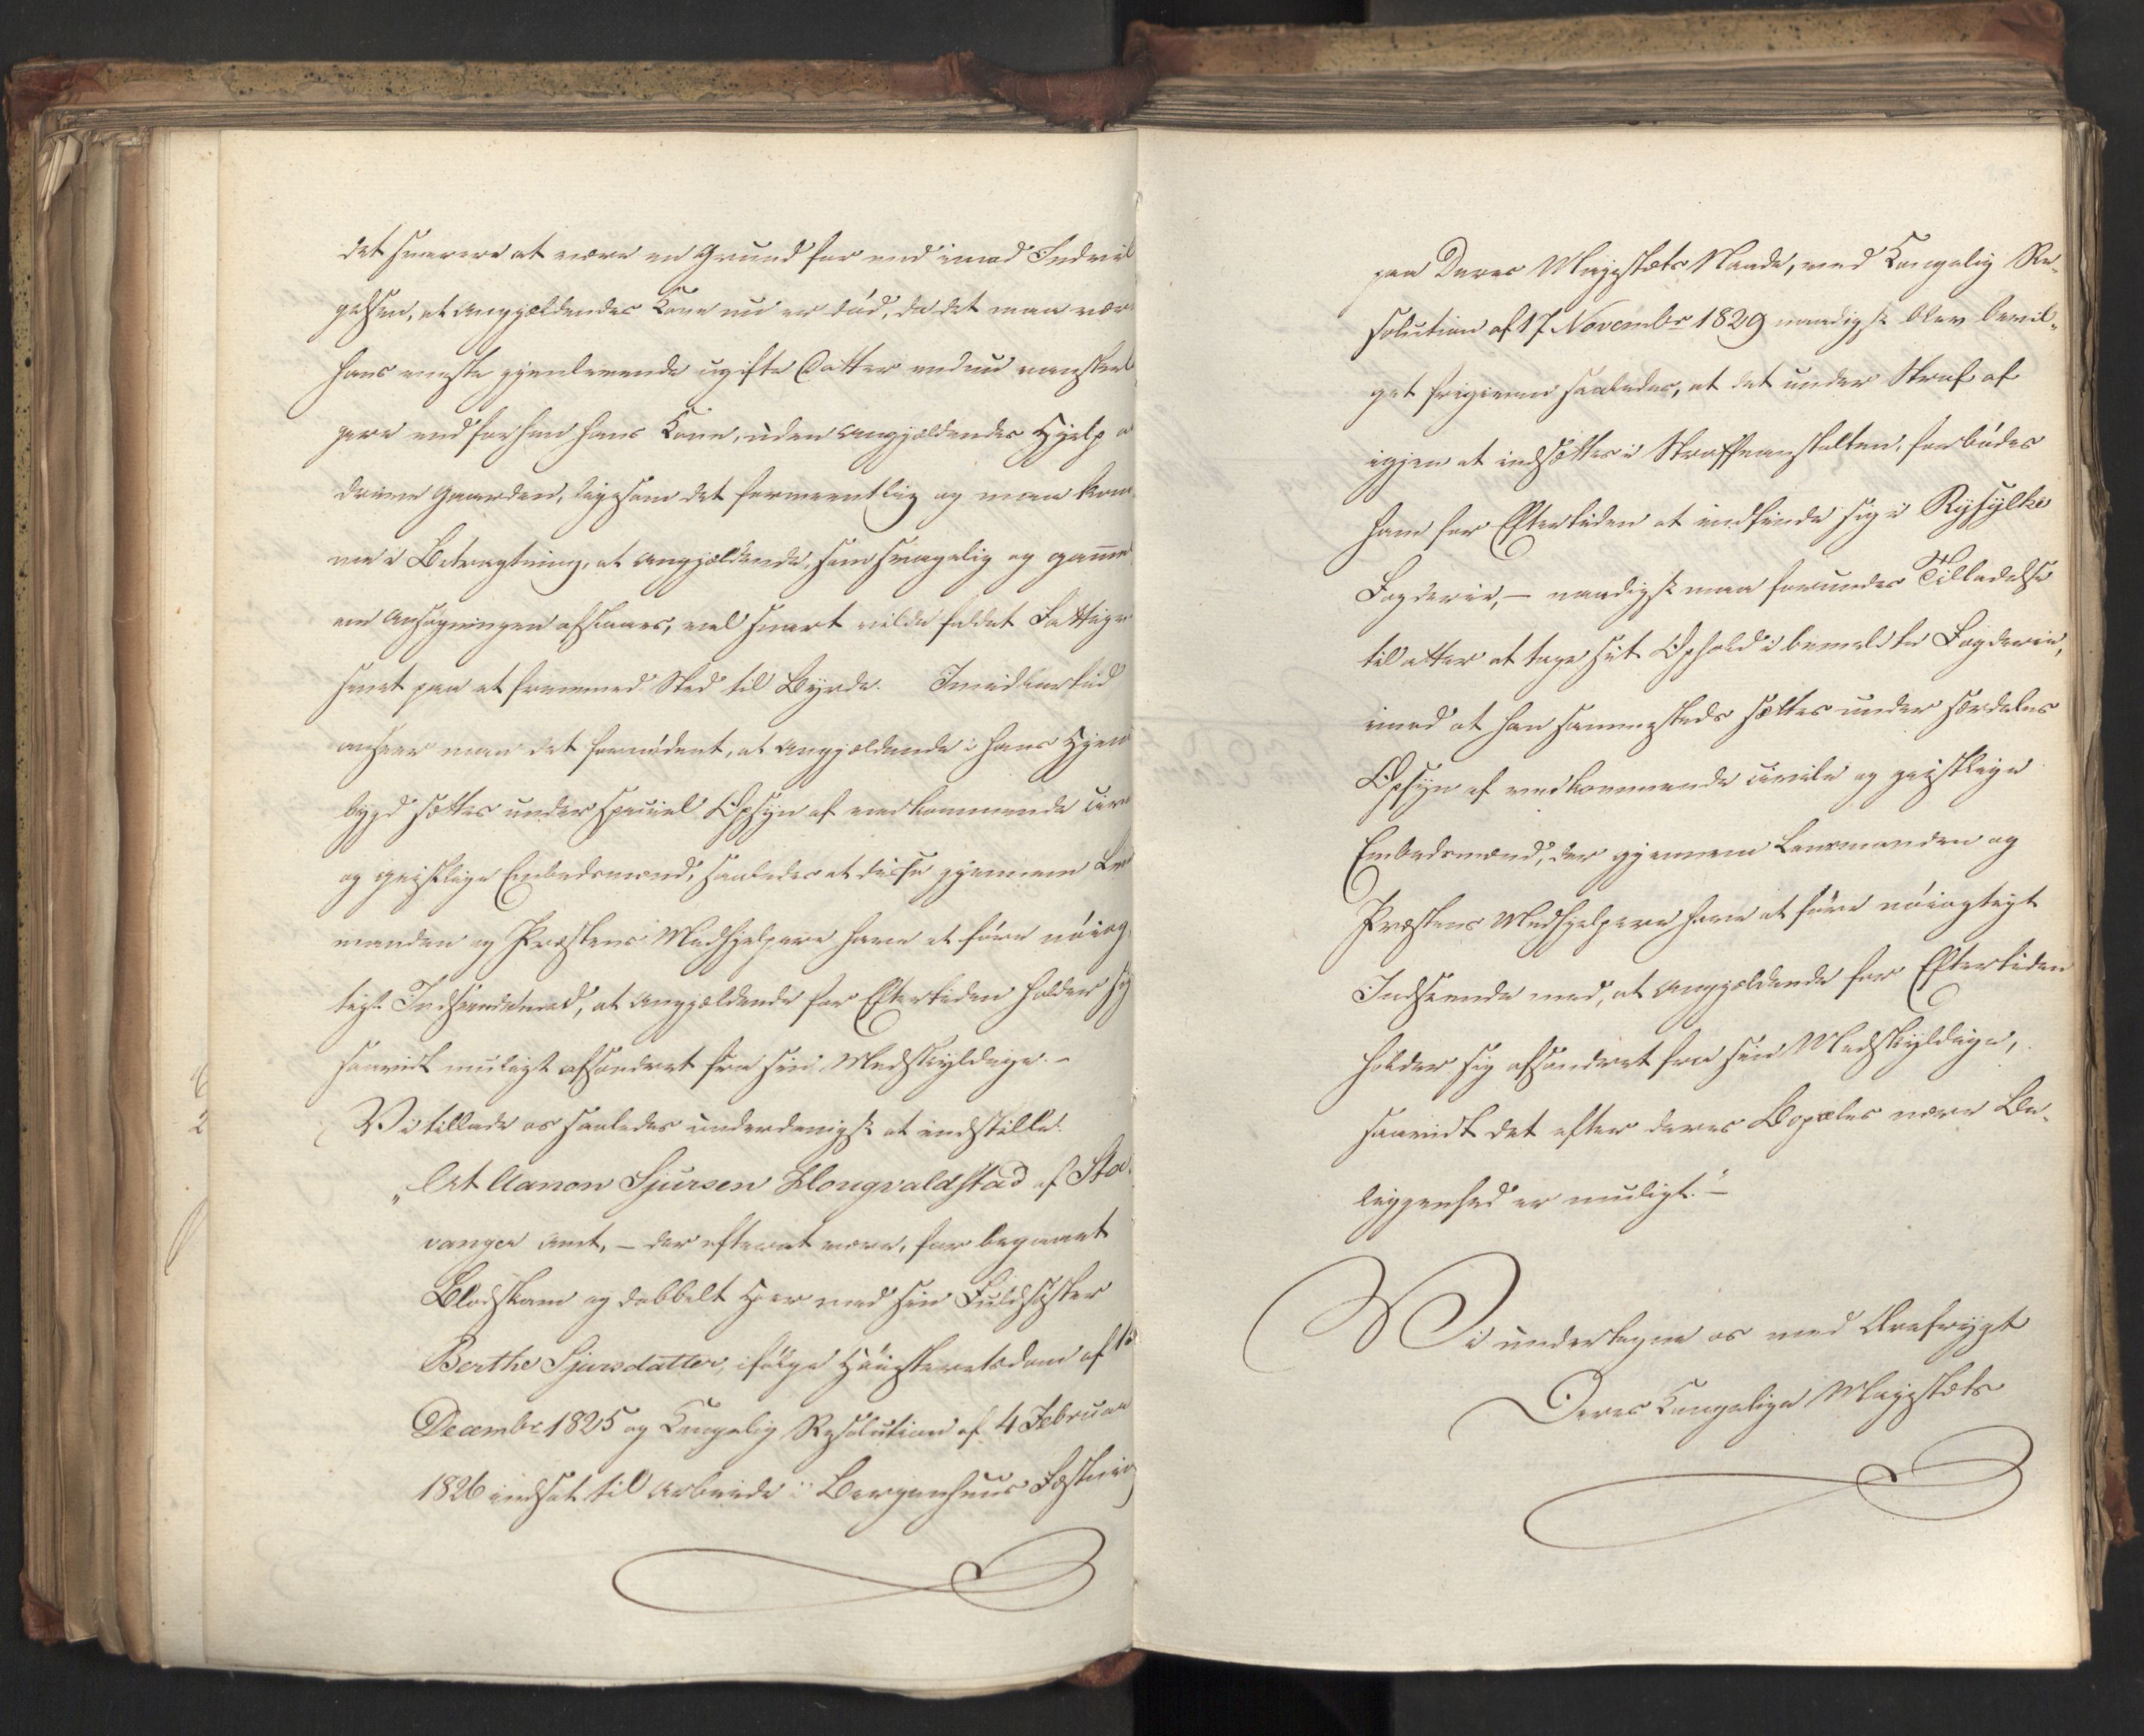 det snarere at være en Grund for end imod Indvil
gelsen, at Angjældendes Kone nu er død, da det maa være
hans eneste gjenlevende ugifte Datter endnu vanskeli
gere end forhen hans Kone, uden Angjældendes Hjelp a
drive Gaarden, ligesom det formeentlig og maa kom
me i Betragtning, at Angjældende, som svagelig og gammel
om Ansøgningen afslaaes, vel snart vilde falde Fattigvæ
senet paa et fremmed Sted til Byrde. Imidlertid
anseer man det fornødent, at Angjældende i hans Hjem
bygd sættes under speciel Opsyn af vedkommende civi
og geistlige Embedsmænd, saaledes at disse gjennem Len
manden og Præstens Medhjelpere have at føre nøiag
tigt Indseende med, at Angjældende for Eftertiden holder sig
saavidt muligt afsondret fra sin Medskyldige. -
Vi tillade os saaledes underdanigst at indstille:
"At Aanon Sjursen Hougvaldstad af Sta
vanger Amt, - der efterat være, for begaaet
Blodskam og dobbelt Hoer med sin Fuldsøster
Berthe Sjursdatter, ifølge Høiesteretsdom af 1
Decembr 1825 og Kongelig Resolution af 4 Februar
1826 indsat til Arbeide i Bergenhuus Fæstning
paa Deres Majestæts Naade, ved Kongelig Re-
solution af 17 Novembr 1829 naadigst blev bevil-
get frigiven saaledes, at det under Straf af
igjen at indsættes i Straffeanstalten, forbødes
ham for Eftertiden at indfinde sig i Ryfylke
Fogderie, - naadigst maa forundes Tilladelse
til atter at tage sit Ophold i bemeldte Fogderie,
imod at han sammesteds sættes under særdeles
Opsyn af vedkommende civile og geistlige
Embedsmænd, der gjennem Lensmanden og
Præstens Medhjelpere have at føre nøiagtigt
Indseende med, at Angjældende for Eftertiden
holder sig afsondret fra sin Medskyldige,
saavidt det efter deres Bopæles nære Be-
liggenhed er muligt." -
Vi undertegne os med Ærefrygt
Deres Kongelige Majestæts